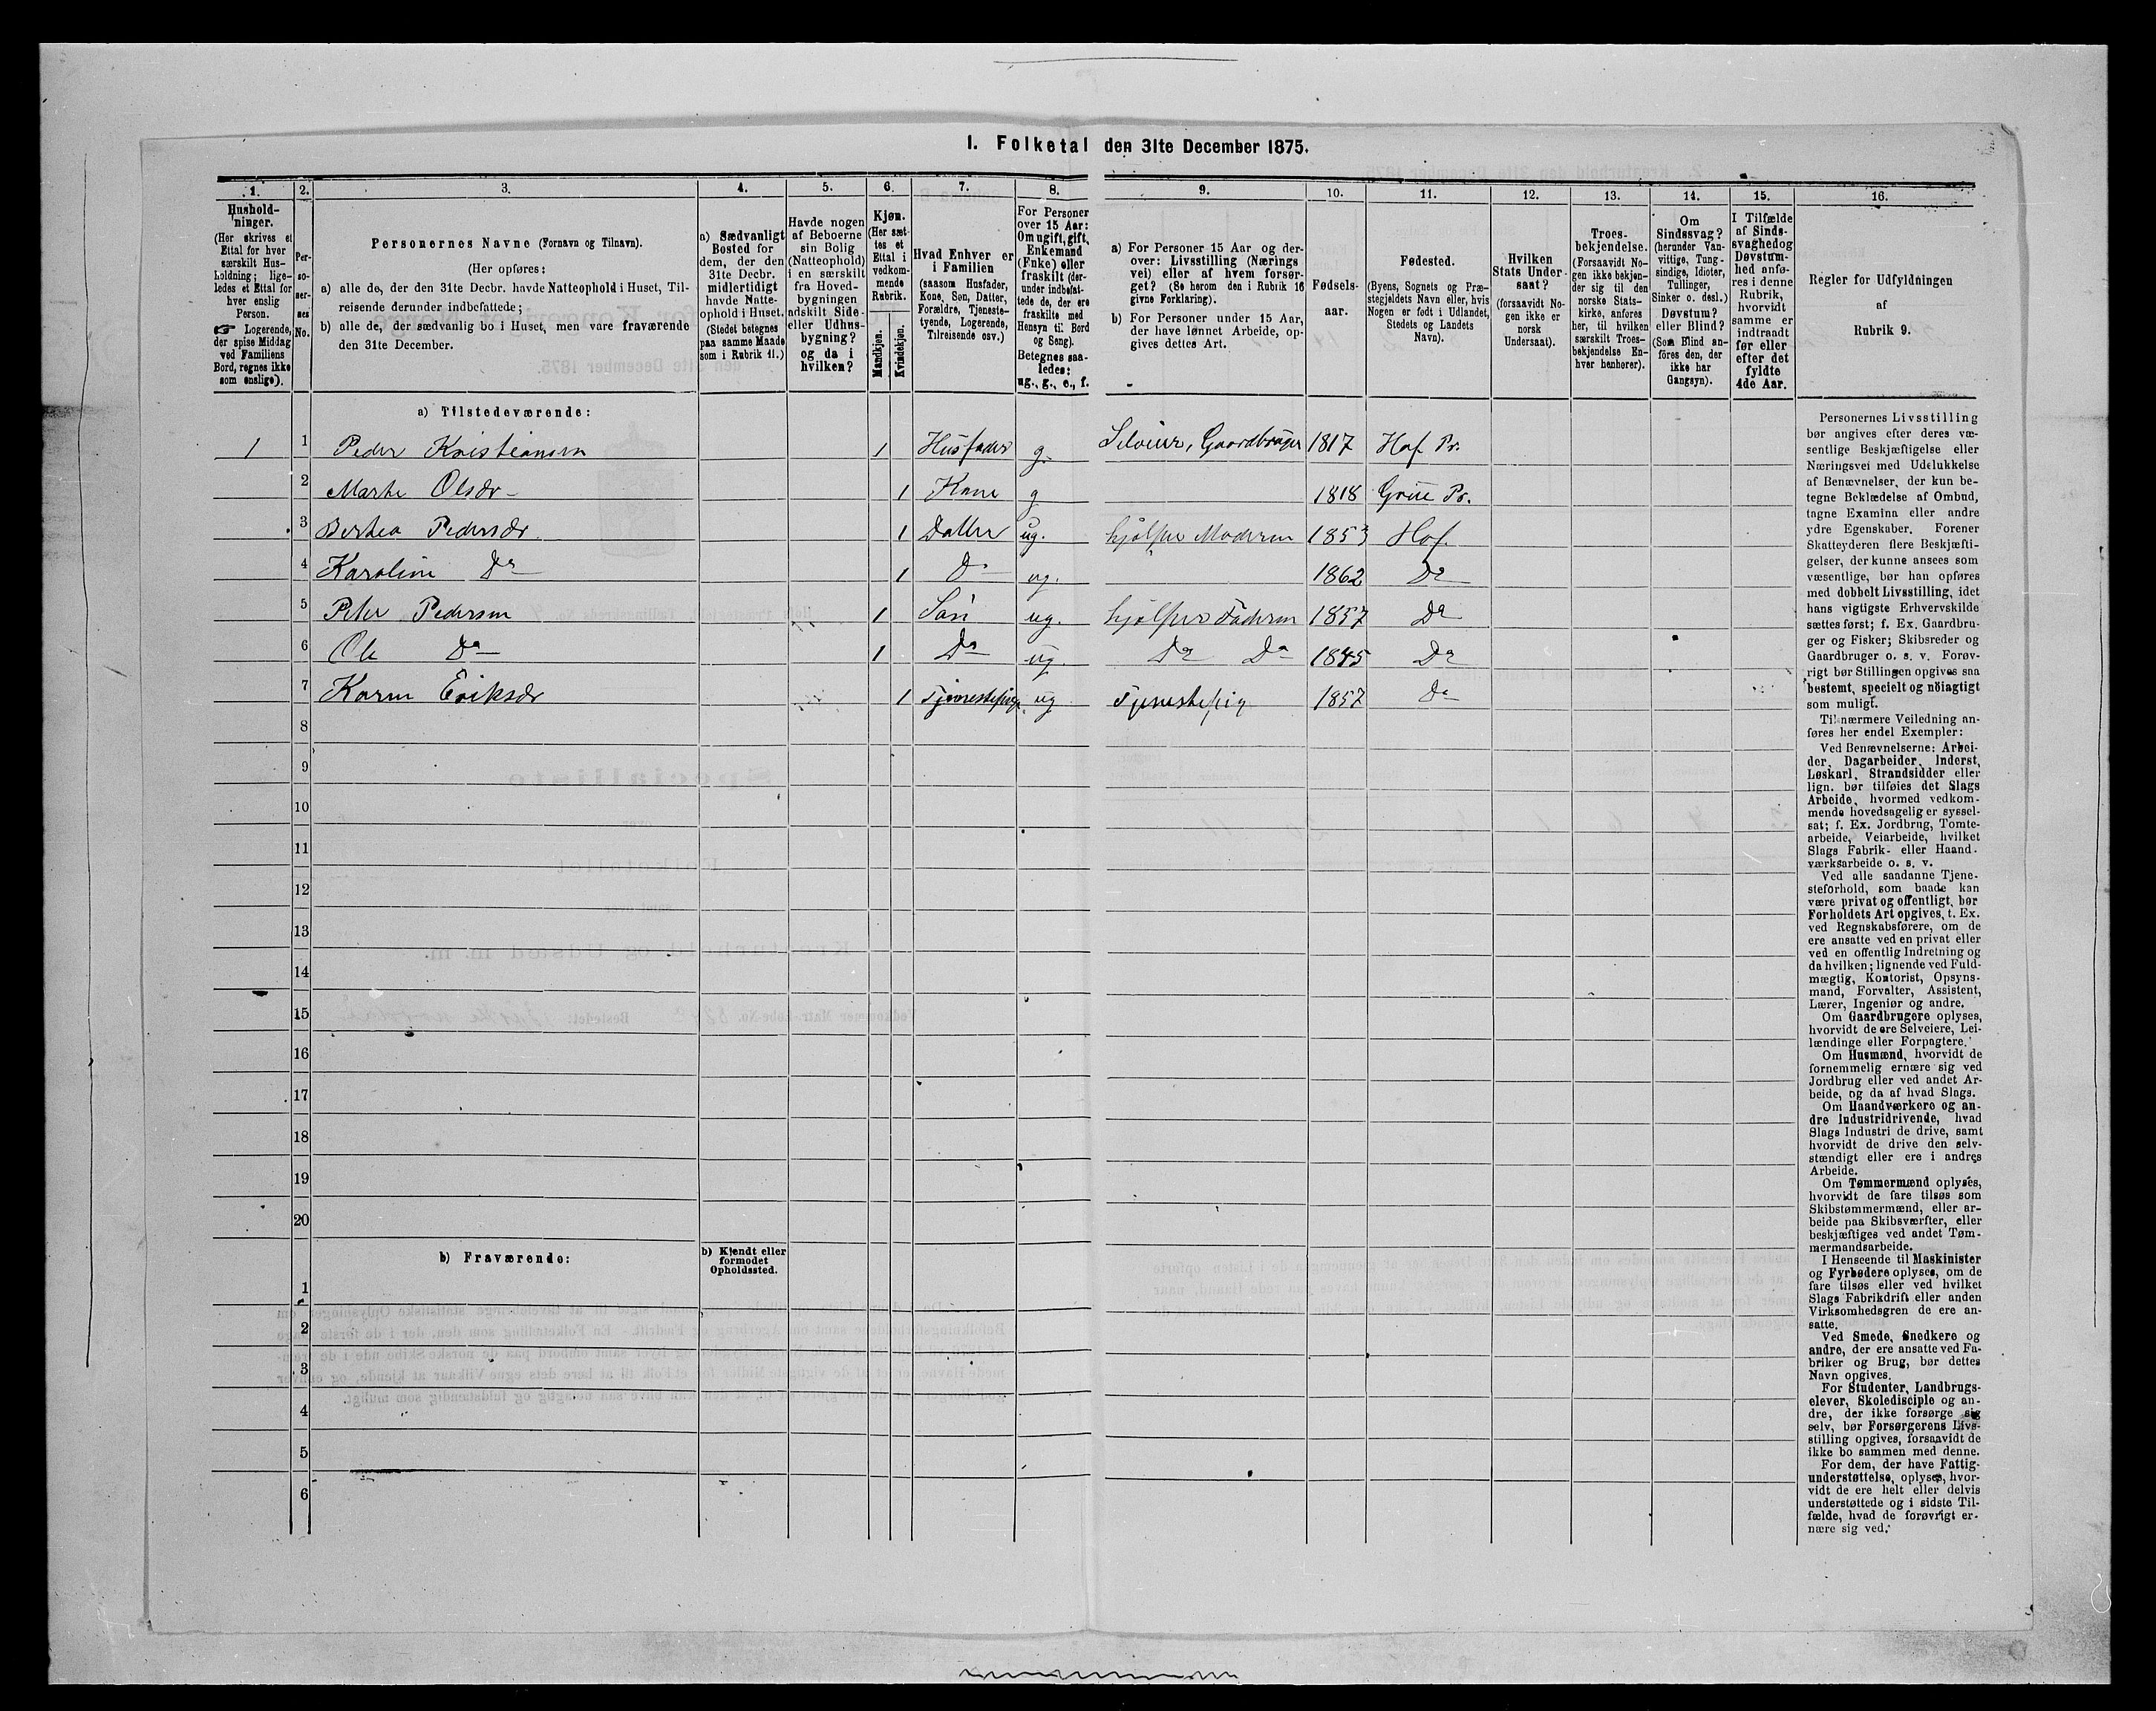 I. Folketal den 31te December 1875.
1. 2. 3. 4. 5. 6. 7. 8. 9. 10. 11. 12. 13. 14. 15. 16.
Hushold-
ninger.
(Her skrives et
Ettal for hver
særskilt Hus-
holdning; lige-
ledes et Ettal for
hver enslig
Person.
☞ Logerende,
der spise Middag
ved Familiens
Bord, regnes ikke
som enslige).
Per-
so-
ner-
nes
No.
Personernes Navne (Fornavn og Tilnavn).
(Her opføres:
a) alle de, der den 31te Decbr. havde Natteophold i Huset, Til-
reisende derunder indbefattede;
b) alle de, der sædvanlig bo i Huset, men vare fraværende
den 31te December.
a) Sædvanligt
Bosted for
dem, der den
31te Decbr.
midlertidigt
havde Natte-
ophold i Huset.
(Stedet betegnes
paa samme Maade
som i Rubrik 11.)
Havde nogen
af Beboerne
sin Bolig
(Natteophold)
i en særskilt
fra Hoved-
bygningen
adskilt Side-
eller Udhus-
bygning?
og da i
hvilken?
Kjøn.
(Her sæt-
tes et
Ettal i
vedkom-
mende
Rubrik.
Mandkjøn.
Kvindekjøn.
Hvad Enhver er
i Familien
(saasom Husfader,
Kone, Søn, Datter,
Forældre, Tjeneste-
tyende, Logerende,
Tilreisende osv.)
For Personer
over 15 Aar:
Om ugift, gift,
Enkemand
(Enke) eller
fraskilt (der-
under indbefat-
tede de, der ere
fraskilte med
Hensyn til Bord
og Seng).
Betegnes saa-
ledes:
ug., g., e., f.
a) For Personer 15 Aar og der-
over: Livsstilling (Nærings
vei) eller af hvem forsør-
get? (Se herom den i Rubrik 16
givne Forklaring).
b) For Personer under 15 Aar,
der have lønnet Arbeide, op-
gives dettes Art.
Fødsels-
aar.
Fødested.
(Byens, Sognets og Præ-
stegjeldets Navn eller, hvis
Nogen er født i Udlandet,
Stedets og Landets
Navn).
Hvilken
Stats Under-
saat?
(forsaavidt No-
gen ikke er
norsk
Undersaat).
Troes-
bekjendelse.
(Forsaavidt No-
gen ikke bekjen-
der sig til den
norske Stats-
kirke, anføres
her, til hvilken
særskilt Troes-
bekjendelse En-
hver henhører).
Om
Sindssvag?
(herunder Van-
vittige, Tung-
sindige, Idioter,
Tullinger,
Sinker o. desl.)
Døvstum?
eller Blind?
(Som Blind an-
føres den, der
ikke har
Gangsyn).
I Tilfælde
af Sinds-
svaghed og
Døvstum-
hed anfø-
res i denne
Rubrik,
hvorvidt
samme er
indtraadt
før eller
efter det
fyldte
4de Aar.
Regler for Udfyldningen
af
Rubrik 9.
a) Tilstedeværende:
1 1 Peder Kristiansen 1 Husfader g. Selveier, Gaardbruger 1817 Hof Pr.
2 Marte Olsdr 1 Kone g 1818 Grue Pr.
3 Berthea Pedersdr. 1 Datter ug. hjælper Moderen 1853 Hof.
4 Karoline Do 1 Do ug. 1862 Do
5 Peter Pedersen 1 Søn ug. hjælper Faderen 1857 Do
6 Ole Do 1 Do ug. Do Do 1845 Do
7 Karen Eriksdr 1 Tjenestepige ug Tjenestepig 1857 Do
8
9
10
11
12
13
14
15
16
17
18
19
20
b) Fraværende:
b) Kjendt eller
formodet
Opholdssted.
1
2
3
4
5
6
Personernes Livsstilling
bør angives efter deres væ-
sentlige Beskjæftigelse eller
Næringsvei med Udelukkelse
af Benævnelser, der kun be-
tegne Beklædelse af Ombud,
tagne Examina eller andre
ydre Egenskaber. Forener
Skatteyderen flere Beskjæfti-
gelser, der kunne ansees som
væsentlige, bør han opføres
med dobbelt Livsstilling, idet
hans vigtigste Erhvervskilde
sættes først; f. Ex. Gaardbru-
ger og Fisker; Skibsreder og
Gaardbruger o. s. v. Forøv-
rigt bør Stillingen opgives saa
bestemt, specielt og nöiagtigt
som muligt.
Til nærmere Veiledning an-
føres her endel Exempler:
Ved Benævnelserne: Arbei-
der, Dagarbeider, Inderst,
Løskarl, Strandsidder eller
lign. bør tilføies det Slags
Arbeide, hvormed vedkom-
mende hovedsagelig er syssel-
sat; f. Ex. Jordbrug, Tomte-
arbeide, Veiarbeide, hvilket
Slags Fabrik- eller Haand-
værksarbeide o. s. v.
Ved alle saadanne Tjene-
steforhold, som baade kan
være privat og offentligt, bør
Forholdets Art opgives, t. Ex.
ved Regnskabsførere, om de
ere ansatte ved en privat eller
ved en offentlig Indretning og
da hvilken; lignende ved Fuld-
mægtig, Kontorist, Opsyns-
mand, Forvalter, Assistent,
Lærer, Ingeniør og andre.
Om Gaardbrugere oplyses,
hvorvidt de ere Selveiere, Lei-
lændinge eller Forpagtere.
Om Husmænd, hvorvidt de
fornemmelig ernære sig ved
Jordbrug eller ved andet Ar-
beide, og da af hvad Slags.
Om Haandværkere og an-
dre Industridrivende, hvad
Slags Industri de drive, samt
hvorvidt de drive den selv-
stændigt eller ere i andres
Arbeide.
Om Tømmermænd oplyses,
hvorvidt de fare tilsøs som
Skibstømmermænd, eller ar-
beide paa Skibsværfter, eller
beskjæftiges ved andet Tøm-
mermandsarbeide.
I Henseende til Maskinister
og Fyrbødere oplyses, om de
fare tilsøs eller ved hvilket
Slags Fabrikdrift eller anden
Virksomhedsgren de ere an-
satte.
Ved Smede, Snedkere og
andre, der ere ansatte ved Fa-
briker og Brug, bør dettes
Navn opgives.
For Studenter, Landbrugs-
elever, Skoledisciple og an-
dre, der ikke forsørge sig
selv, bør Forsørgerens Livs-
stilling opgives, forsaavidt de
ikke bo sammen med denne.
For dem, der have Fattig-
understøttelse, oplyses, hvor-
vidt de ere helt eller delvis
understøttede og i sidste Til-
fælde, hvad de forøvrigt er-
nære sig ved.